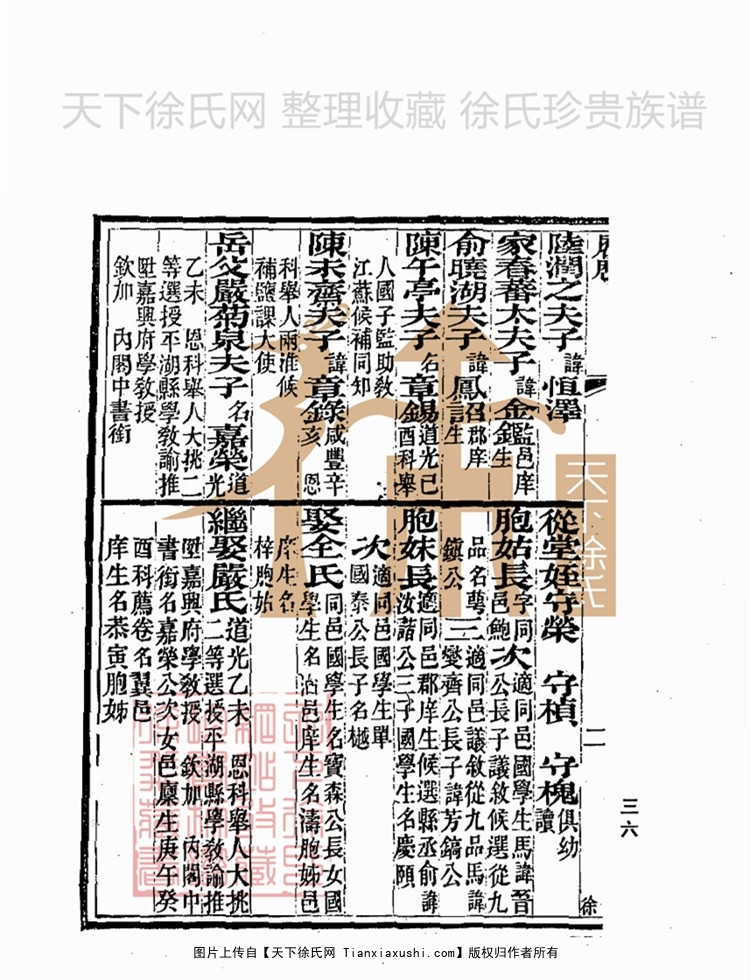 天下徐氏网 整理收藏 徐氏珍贵族谱
陸潤之夫子諱恒澤
家春蕃太夫子諱金鑑邑庠生
俞曉湖夫子諱鳳詔郡庠生
陳午亭夫子名章錫道光己酉科舉
人國子監助教
江蘇候補同知
陳未齋夫子諱章錄咸豐辛亥恩
科舉人兩淮候
補鹽課大使
岳父嚴菊泉夫子名嘉榮道光
乙未恩科舉人大挑二
等選授平湖縣學教諭推
陞嘉興府學教授
欽加內閣中書銜
從堂姪守榮 守楨 守槐俱幼讀
胞姑長字同邑鮑次適同邑國學生馬諱晉公長子議敘候選從九
品名蕚三適同邑議敘從九品馬諱燮齋公長子諱芳鎬公
鎮公
胞妹長適同邑郡庠生候選縣丞俞諱汝諧公三子國學生名慶頤
次適同邑國學生單國泰公長子名樾
娶全氏同邑國學生名寶森公長女國學生名治邑庠生名濤胞姊邑
庠生名
梓胞姑
繼娶嚴氏道光乙未恩科舉人大挑二等選授平湖縣學教諭推
陞嘉興府學教授欽加內閣中
書銜名嘉榮公次女邑廩生庚午癸
酉科薦卷名翼邑
庠生名恭寅胞姊
二
三六
徐
天下徐氏
图片上传自【天下徐氏网 Tianxiaxushi.com】版权归作者所有